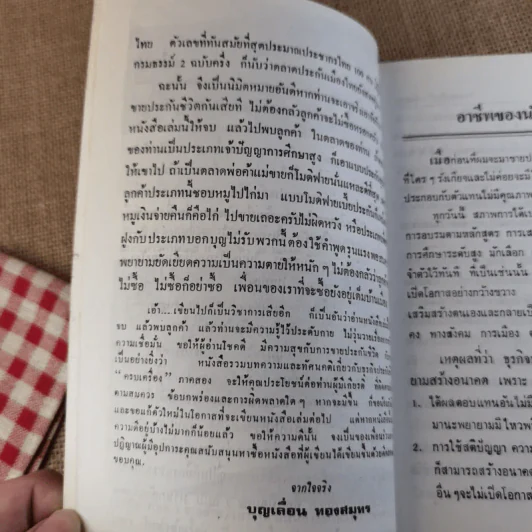 ไทย ตัวเลขที่ทันสมัยที่สุดประมาณประชากรไทย 100 คน
กรมธรรม์ 2 ฉบับครึ่ง ก็นับว่าตลาดประกันเมืองไทยยัง
ฉะนั้น จึงเป็นนิมิตหมายอันดีหากท่านจะเอาจริง
ขายประกันชีวิตกันเสียที ไม่ต้องกลัวลูกค้าจะไม่ซื้อ
หนังสือเล่มนี้ให้จบ แล้วไปพบลูกค้า ในตลาดของท่าน
ของท่านเป็นประเภทเจ้าปัญญาการศึกษาสูง ก็เอาแบบ
ให้เขาไป ถ้าเป็นตลาดพ่อค้าแม่ขายก็ไมดิฟายนั่นแหละดีที่สุด
ลูกค้าประเภทนี้ชอบหมูไปไก่มา แบบไมดิฟายเบี้ยประกัน
หมูเงินจ่ายคืนก็คือไก่ ไปขายเถอะครับไม่ผิดหวัง หรือ
ฝูงกับประเภทบอกบุญไม่รับพวกนี้ ต้องใช้คำพูดรุนแรง
พยายามยัดเยียดความเป็นความตายให้หนักๆ ไม่ต้องกลัว
ไม่ซื้อ ไม่ซื้อก็อย่าซื้อ เพื่อนของเราที่จะซื้อยังอยู่เต็มบ้าน
เอ้า... เขียนไปก็เป็นวิชาการเสียอีก ก็เป็นอันว่าอ่านหนังสือ
จบ แล้วพบลูกค้า แล้วท่านจะมีความรู้ไว้ประดับกาย
ความเชื่อมั่น ขอให้ผู้อ่านโชคดี มีความสุขกับการขายประกันชีวิต
เป็นอย่างยิ่งว่า หนังสือรวมบทความและทัศนคติเกี่ยวกับธุรกิจ
"ครบเครื่อง" ภาคสอง จะให้คุณประโยชน์ต่อท่านผู้มีเกียรติ
ตามสมควร ข้อบกพร่องและการผิดพลาดใดๆ หากจะมีขึ้น
และขอแก้ตัวใหม่ในโอกาสที่จะเขียนหนังสือเล่มต่อไป
ความดีอยู่บ้างไม่มากก็น้อยแล้ว ขอให้ความดีนั้น จงเป็นของ
ปฏิญาณผู้มีอุปการะคุณสนับสนุนหาซื้อหนังสือที่ผู้เขียนได้เขียนขึ้น
ขอบคุณ.
จากใจจริง
บุญเลื่อน ทองสมุทร
อาชีพของ
เมื่อก่อนที่ผมจะมาขาย
ที่ใครๆ รังเกียจและไม่ค่อยจะมี
ประกอบกับตัวแทนไม่มีคุณภาพ
ทุกวันนี้ สภาพการ
การอบรมตามหลักสูตร การ
การศึกษาระดับสูง นักเลือก
จำตัวไว้ทันที ที่เป็นเช่นนั้น
เปิดโอกาสอย่างกว้างขวาง
เสริมสร้างตนเองและกลายเป็น
คง ทางสังคม การเมือง
เหตุผลที่ว่า ธุรกิจ
ยามสร้างอนาคต เพราะ
1. ได้ผลตอบแทนอันไม่มี
มานะพยายามมี ไหวพริบ
2. การใช้สติปัญญา ความ
ก็สามารถสร้างอนาคต
อื่นๆ จะไม่เปิดโอกาส